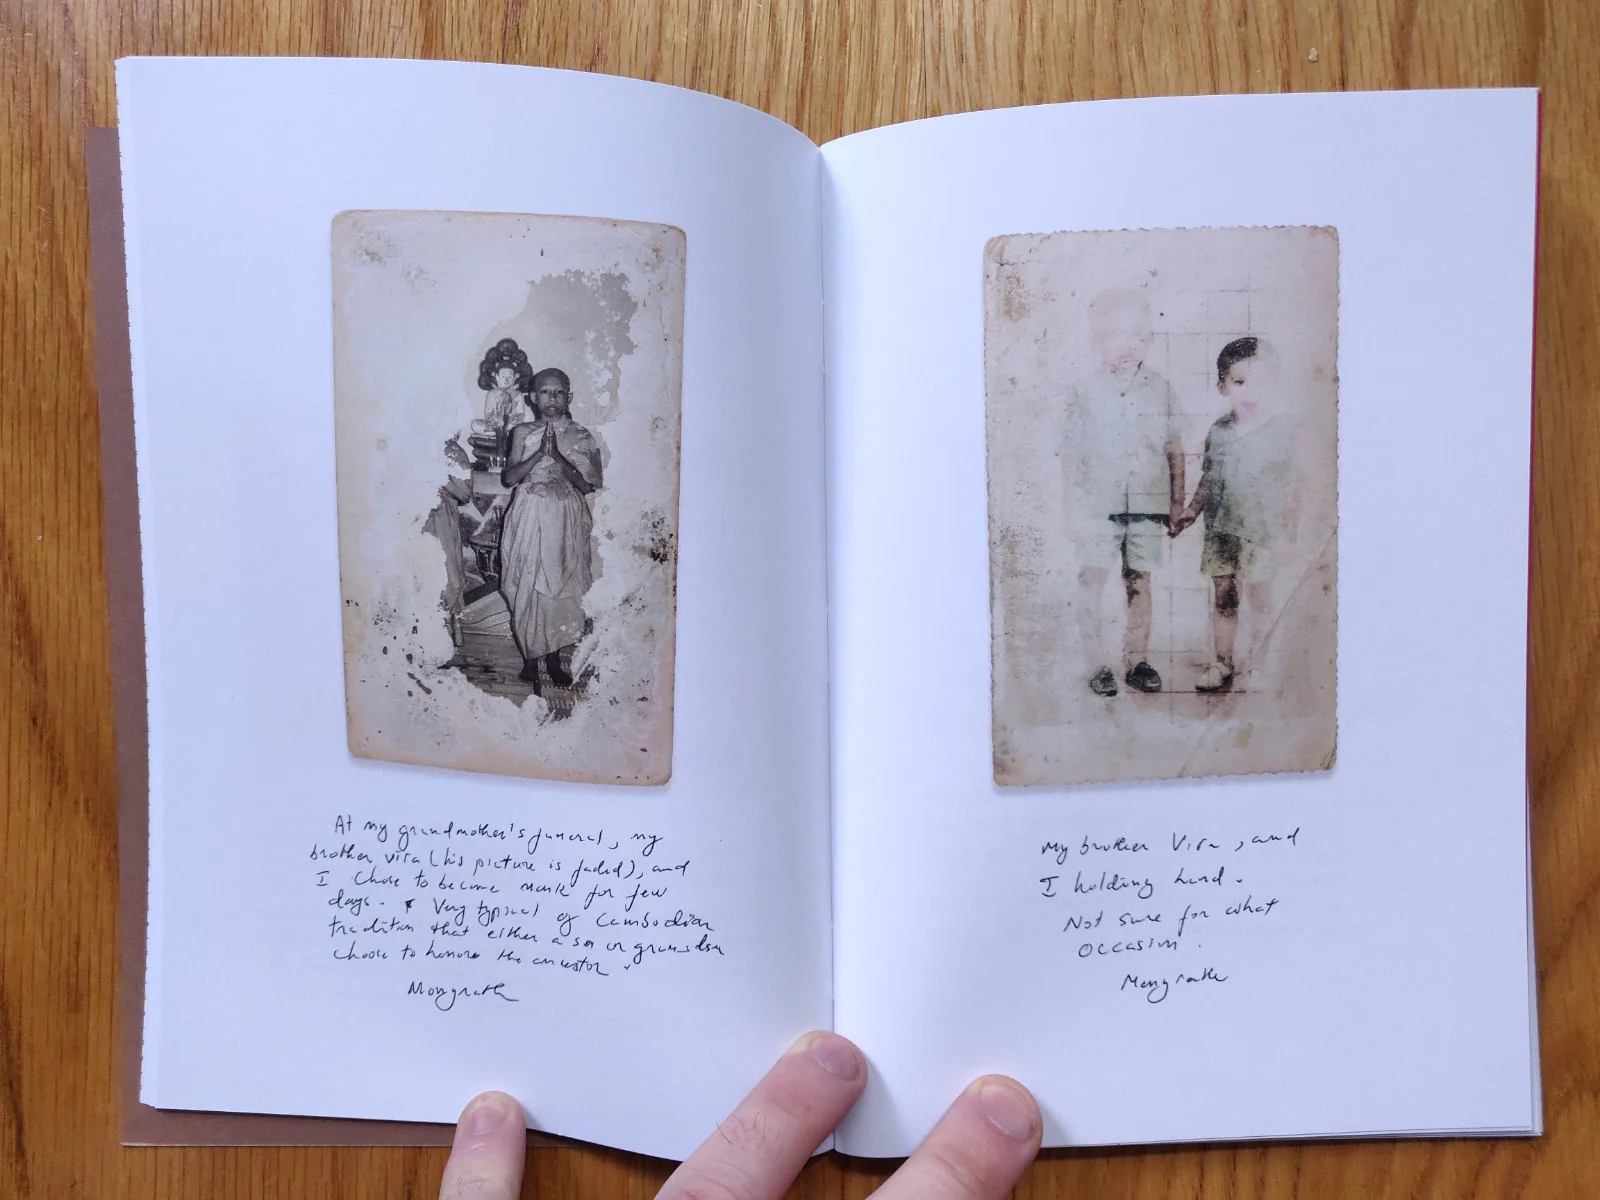 At my grandmother's funeral, my
brother Vira (his picture is faded), and
I chose to become monk for few
days. Very typical of Cambodian
tradition that either a son or grandson
choose to honore the ancestor.
Mengrath
My brother Vira, and
I holding hand.
Not sure for what
occasion.
Mengrath